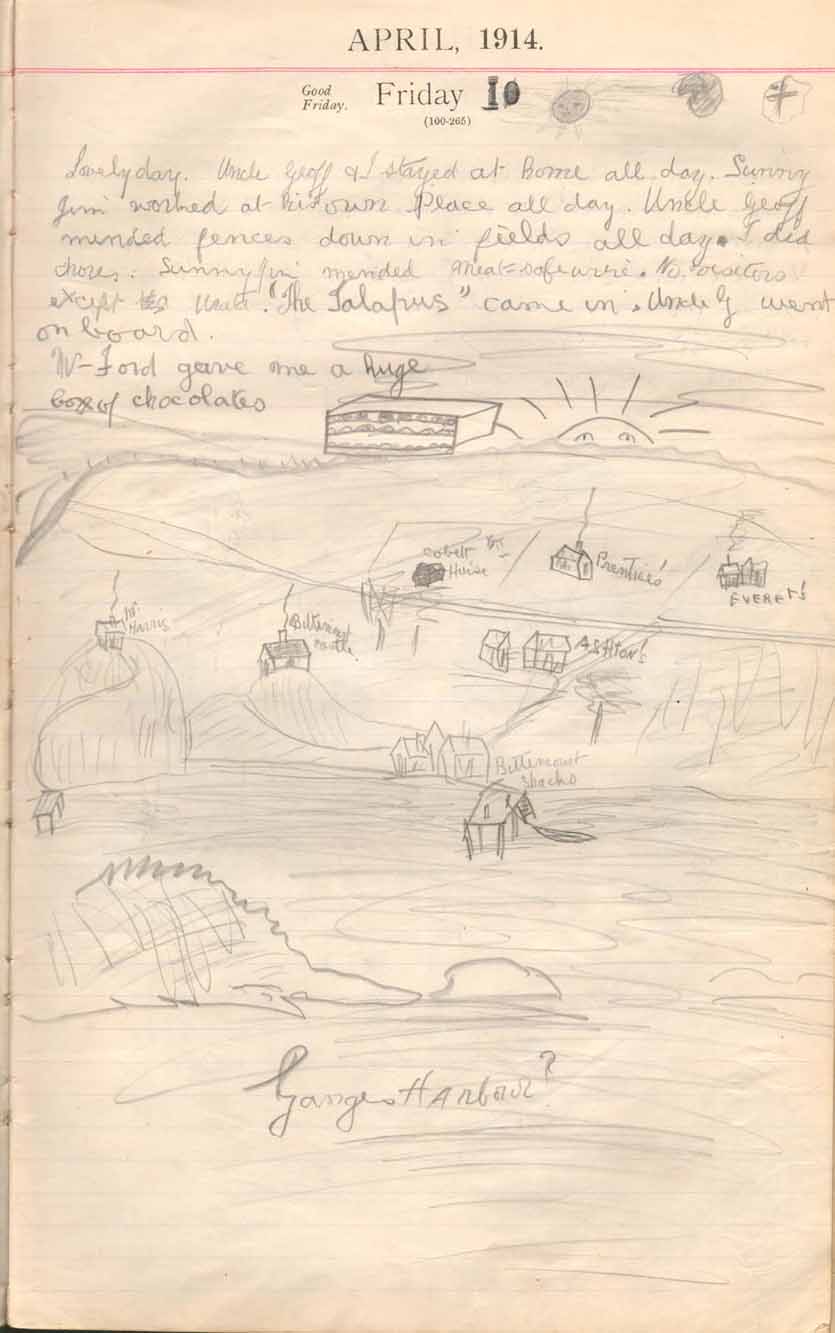 APRIL, 1914.
Good Friday.
Friday 10
(100-265)
Lovely day. Uncle Geoff & I stayed at home all day. Sunny
Jim worked at his own Place all day. Uncle Geoff
mended fences down in fields all day. I did
chores. Sunny Jim mended meat-safe wire. No visitors
except "The Talapus" came in. Uncle G went
on board.
Mr Ford gave me a huge
box of chocolates
House
Prentice's
EVERET'S
Mr. Harris
Bittancourt
ASHTON'S
Bittancourt
Shacks
Ganges HArbour?